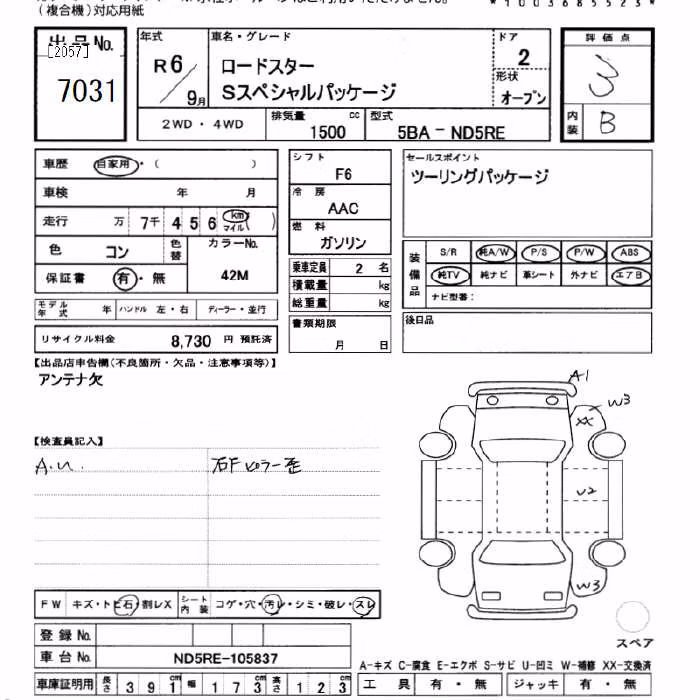 (複合機)対応用紙
*1003685523*
出品No.
[2057]
7031
年式
R6
9月
車名・グレード
ロードスター
Sスペシャルパッケージ
ドア
2
形状
オープン
評価点
3
内装
B
2WD・4WD
排気量
1500
cc
型式
5BA-ND5RE
車歴
自家用・( )
車検 年 月
走行 万 7千 4 5 6 km マイル( )
色 コン 色替
カラーNo.
42M
保証書 有・無
シフト
F6
冷房
AAC
燃料
ガソリン
乗車定員 2 名
積載量 kg
総重量 kg
セールスポイント
ツーリングパッケージ
装備品
S/R 純A/W P/S P/W ABS
純TV 純ナビ 革シート 外ナビ エアB
ナビ型番:
モデル年式 年 ハンドル 左・右 ディーラー・並行
リサイクル料金 8,730 円 預託済
書類期限
月 日
後日品
【出品店申告欄(不良箇所・欠品・注意事項等)】
アンテナ欠
【検査員記入】
A.u. 右Fピラー歪
A1
W3
XX
U2
W3
スペア
FW キズ・トビ石・割レX シート内装 コゲ・穴・汚レ・シミ・破レ・スレ
登録No.
車台No. ND5RE-105837
A-キズ C-腐食 E-エクボ S-サビ U-凹ミ W-補修 XX-交換済
車庫証明用 長さ 391cm 幅 173cm 高さ 123cm
工具 有・無 ジャッキ 有・無